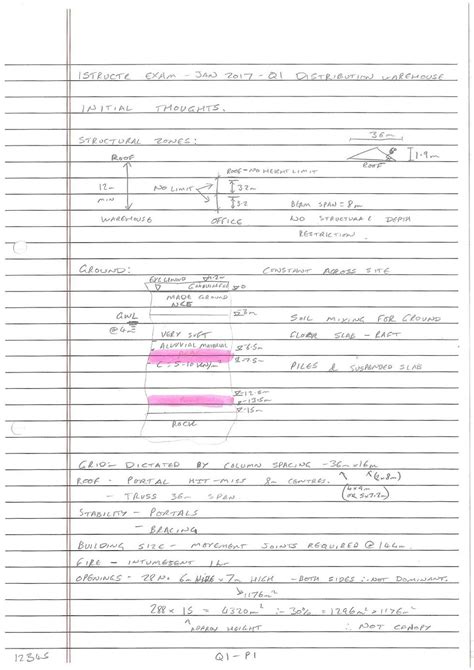 ISTRUCTE EXAM - JAN 2017 - Q1 DISTRIBUTION WAREHOUSE
INITIAL THOUGHTS.
STRUCTURAL ZONES:
36m
ROOF
1.9m
ROOF
ROOF = NO HEIGHT LIMIT
12m
MIN
NO LIMIT
3.2m
3.2
BEAM SPAN = 8m
WAREHOUSE
OFFICE
NO STRUCTURAL DEPTH
RESTRICTION.
GROUND:
CONSTANT ACROSS SITE
MADE GROUND
GWL
@ 4m
3m
SOIL MIXING FOR GROUND
VERY SOFT
FLOOR SLAB - RAFT
ALLUVIAL MATERIAL
6.5m
7.5m
C = 5-10 kN/m²
PILES & SUSPENDED SLAB
12.5m
13.5m
15m
ROCK
GRID = DICTATED BY COLUMN SPACING - 36m x 16m
ROOF - PORTAL HIT-MISS 8m CENTRES.
- TRUSS 36m SPAN
STABILITY - PORTALS
- BRACING
BUILDING SIZE - MOVEMENT JOINTS REQUIRED @ 144m.
FIRE - INTUMESCENT 1h
OPENINGS - 28No 6m WIDE x 7m HIGH - BOTH SIDES ∴ NOT DOMINANT.
1176m²
288 x 15 = 4320m² ∴ 30% = 1296m² > 1176m²
∴ NOT CANOPY
12345
Q1-P1